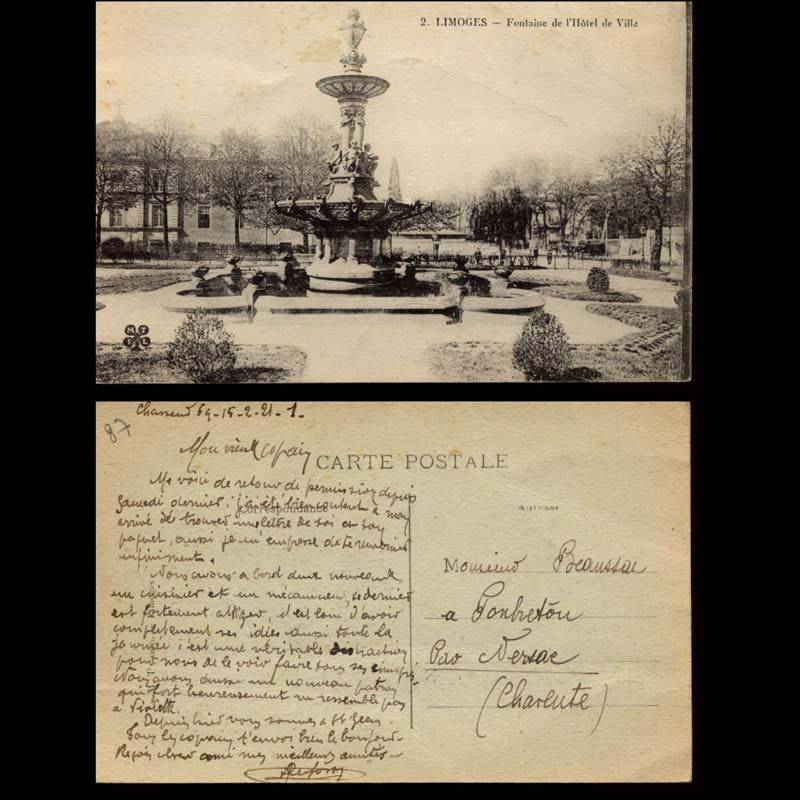 2. LIMOGES — Fontaine de l'Hôtel de Ville
MTIL
87
Chasseur 69-15-2-21-1-
Mon vieux copain
CARTE POSTALE
Me voici de retour de permission depuis
Samedi dernier, j'ai été bien content à mon
Correspondance
arrivé de trouver une lettre de toi et ton
paquet, aussi je m'empresse de te remercier
infiniment.
Nous avons a bord deux nouveaux
un cuisinier et un mécanicien, ce dernier
est fortement, il est loin d'avoir
complètement ses idées aussi toute la
journée c'est une véritable distraction
pour nous de le voir faire tous ses
Nous avons aussi un nouveau patron
qui fort heureusement ne ressemble pas
à Violette.
Depuis hier nous sommes a St Jean.
Tous les copains t'envoi bien le bonjour.
Reçois cher ami mes meilleurs amitiés
Adresse
Monsieur Beaussac
a Pontreton
Par Nersac
(Charente)